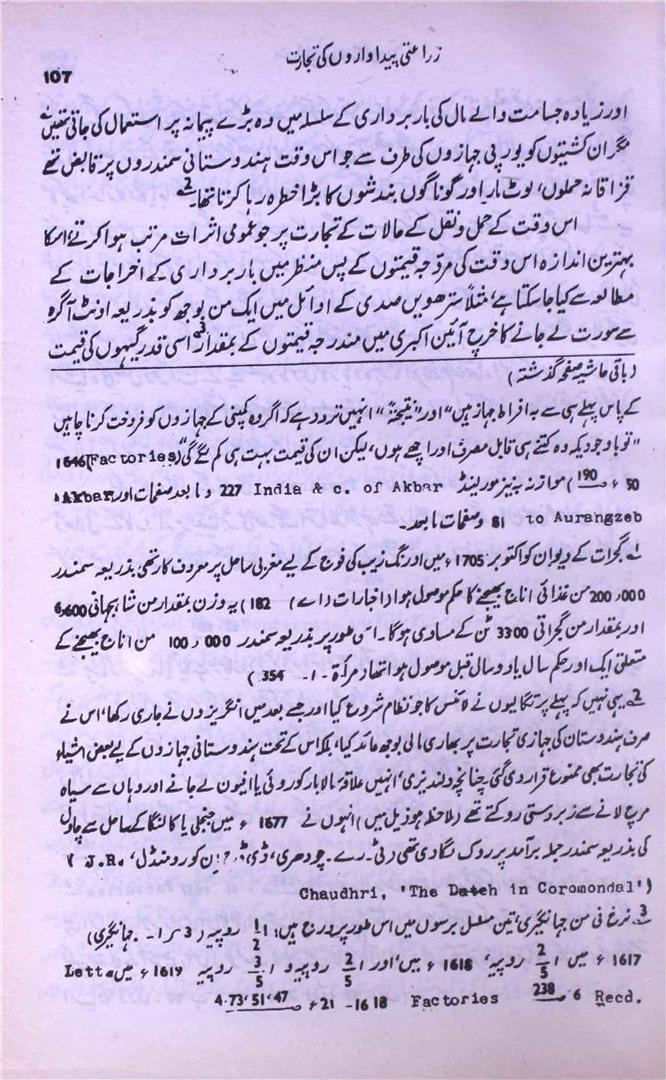 زراعتی پیداواروں کی تجارت
107
اور زیادہ جسامت والے مال کی باربرداری کے سلسلہ میں وہ بڑے پیمانہ پر استعمال کی جاتی تھیں
مگر ان کشتیوں کو یورپی جہازوں کی طرف سے جو اس وقت ہندوستانی سمندروں پر قابض تھے
قزاقانہ حملوں، لوٹ مار اور گوناگوں بندشوں کا بڑا خطرہ رہا کرتا تھا۔2
اس وقت کے حمل و نقل کے حالات کے تجارت پر جو عمومی اثرات مرتب ہوا کرتے، اسکا
بہترین اندازہ اس وقت کی مروجہ قیمتوں کے پس منظر میں باربرداری کے اخراجات کے
مطالعہ سے کیا جا سکتا ہے، مثلاً سترھویں صدی کے اوائل میں ایک من بوجھ کو بذریعہ اونٹ آگرہ
سے سورت لے جانے کا خرچ آئین اکبری میں مندرجہ قیمتوں کے بمقدار3 اسی قدر گیہوں کی قیمت
(باقی حاشیہ صفحہ گذشتہ)
کے پاس پہلے ہی سے بہ افراط جہاز ہیں" اور "نتیجتہً" انہیں تردد ہے کہ اگر وہ کمپنی کے جہازوں کو فروخت کرنا چاہیں
"تو باوجودیکہ وہ کتنے ہی قابل مصرف اور اچھے ہوں، لیکن ان کی قیمت بہت ہی کم لگے گی" (Factories) 1646
50 ء 190) موازنہ پنیز مورلینڈ India & c. of Akbar 227 و مابعد صفحات اور Akbar
to Aurangzeb 81 و صفحات مابعد۔
1 گجرات کے دیوان کو اکتوبر 1705ء میں اورنگ زیب کی فوج کے لیے مغربی ساحل پر معروف کار تھی بذریعہ سمندر
200,000 من غذائی اناج بھیجنے کا حکم موصول ہوا (اخبارات (اے) 182) یہ وزن بمقدار من شاہجہانی 6,600
اور بمقدار من گجراتی 3300 ٹن کے مساوی ہوگا۔ اسی طور پر بذریعہ سمندر 100,000 من اناج بھیجنے کے
متعلق ایک اور حکم سال یا دو سال قبل موصول ہوا تھا (مراۃ۔ I۔ 354)
2 یہی نہیں کہ پہلے پرتگالیوں نے لائسنس کا جو نظام شروع کیا اور جسے بعد میں انگریزوں نے جاری رکھا، اس نے
صرف ہندوستان کی جہازی تجارت پر بھاری مالی بوجھ عائد کیا، بلکہ اس کے تحت ہندوستانی جہازوں کے لیے بعض اشیاء
کی تجارت بھی ممنوع قرار دی گئی چنانچہ ولندیزی، انہیں علاقہ مالابار کو روئی یا افیون لے جانے اور وہاں سے سیاہ
مرچ لانے سے زبردستی روکتے تھے (ملاحظہ ہو ذیل میں) انہوں نے 1677ء میں جنجلی یا کالنگا کے ساحل سے چاول
کی بذریعہ سمندر جملہ برآمد پر روک لگا دی تھی (ٹی۔ رے۔ چودھری، ڈی کورومنڈل، J.R.
Chaudhri, 'The Dateh in Coromondal')
3 نرخ فی من جہانگیری تین مسلسل برسوں میں اس طور پر درج ہیں: 1 1/2 روپیہ (جہانگیری)
1617ء میں 1 2/5 روپیہ، 1618ء میں، اور 1 2/5 روپیہ و 1 3/5 روپیہ 1619ء میں Letts
Recd. 6 238 Factories 1618 - 21ء 4.73،51،47